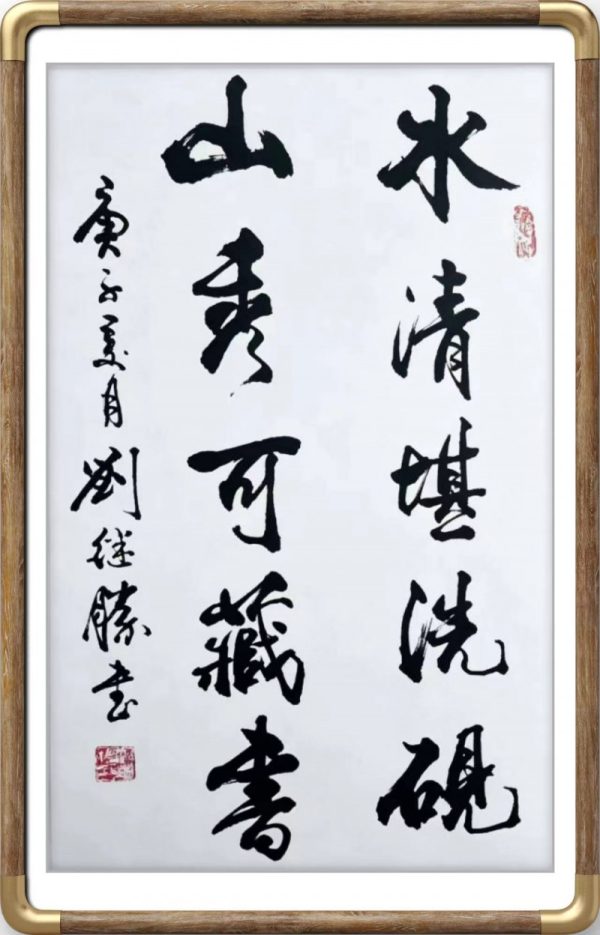 水清堪洗砚
山秀可藏书
庚子夏月刘继胜书